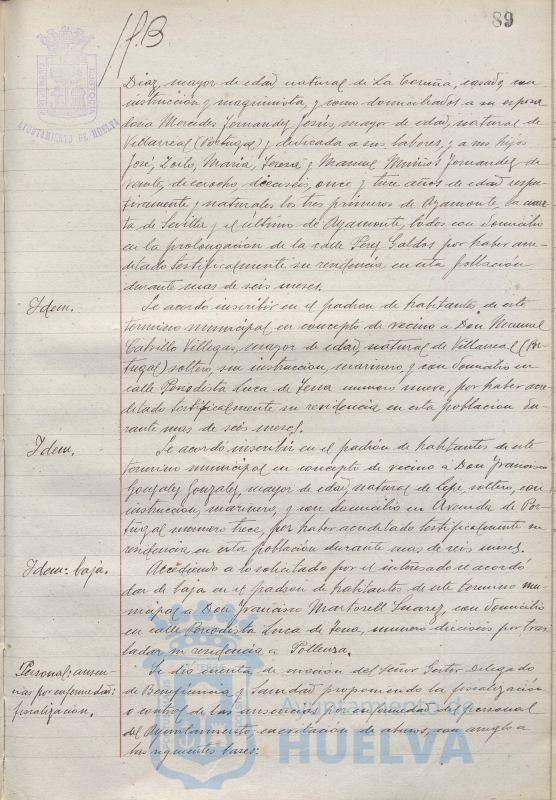 89
AYUNTAMIENTO DE HUELVA
Diaz, mayor de edad natural de La Coruña, casado, con
instrucción y maquinista, y como domiciliados a su esposa
doña Mercedes Fernandez Jesús, mayor de edad, natural de
Villarreal (Portugal) y dedicada a sus labores, y a sus hijos
José, Zoilo, Maria, Teresa y Manuel Muiños Fernandez de
veinte, dieciocho, dieciseis, once y trece años de edad respec-
tivamente y naturales los tres primeros de Ayamonte, la cuar-
ta de Sevilla y el último de Ayamonte, todos con domicilio
en la prolongacion de la calle Perez Galdos por haber acre-
ditado testificalmente su residencia en esta poblacion
durante mas de seis meses.
Idem.
Se acordó inscribir en el padron de habitantes de este
termino municipal en concepto de vecino a Don Manuel
Castillo Villegas, mayor de edad, natural de Villarreal (Por-
tugal) soltero, sin instruccion, marinero, y con domicilio en
calle Periodista Luca de Tena numero nueve, por haber acre-
ditado testificalmente su residencia en esta poblacion du-
rante mas de seis meses.
Idem.
Se acordó inscribir en el padrón de habitantes de este
termino municipal en concepto de vecino a Don Francisco
Gonzalez Gonzalez, mayor de edad, natural de Lepe, soltero, con
instruccion, marinero, y con domicilio en Avenida de Por-
tugal numero trece, por haber acreditado testificalmente su
residencia en esta poblacion durante mas de seis meses.
Idem: baja.
Accediendo a lo solicitado por el interesado se acordó
dar de baja en el padron de habitantes de este termino mu-
nicipal a Don Francisco Martorell Suarez, con domicilio
en calle Periodista Luca de Tena, numero dieciseis por tras-
ladar su residencia a Pollensa.
Personal: ausen-
cias por enfermedad:
fiscalizacion.
Se dió cuenta de moción del señor Gestor Delegado
de Beneficencia y Sanidad proponiendo la fiscalización
o control de las ausencias por enfermedad del personal
del Ayuntamiento, en evitacion de abusos, con arreglo a
las siguientes bases:
Ayuntamiento de
HUELVA